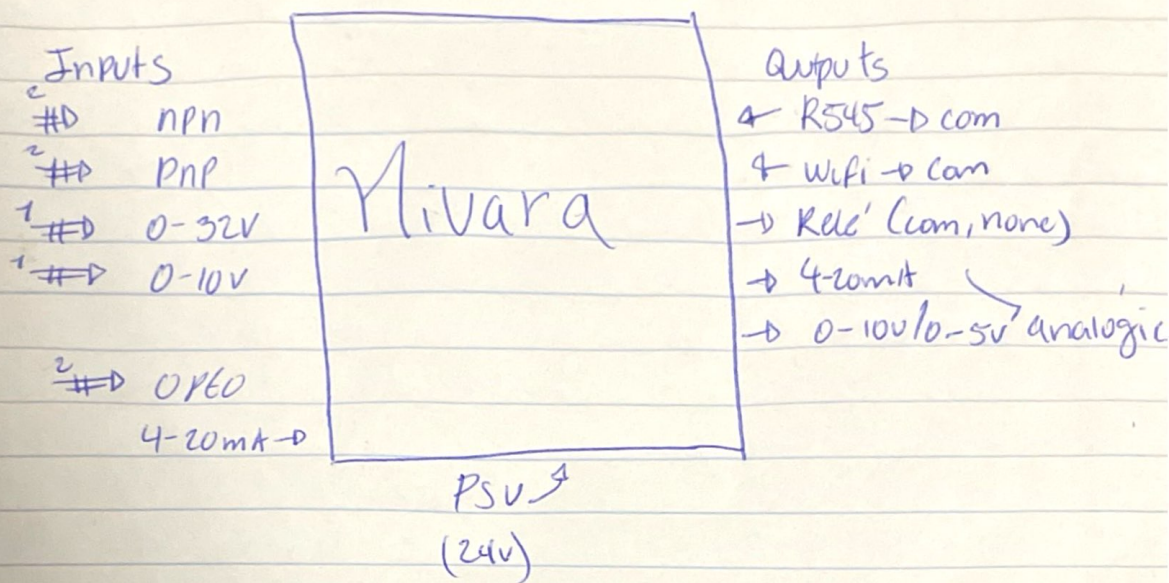 Inputs
2 npn
2 pnp
1 0-32V
1 0-10V
2 OPTO
4-20mA
Nivara
PSU
(24V)
Outputs
RS45 com
Wifi com
Relé (com, none)
4-20mA
0-10V/0-5V analogic